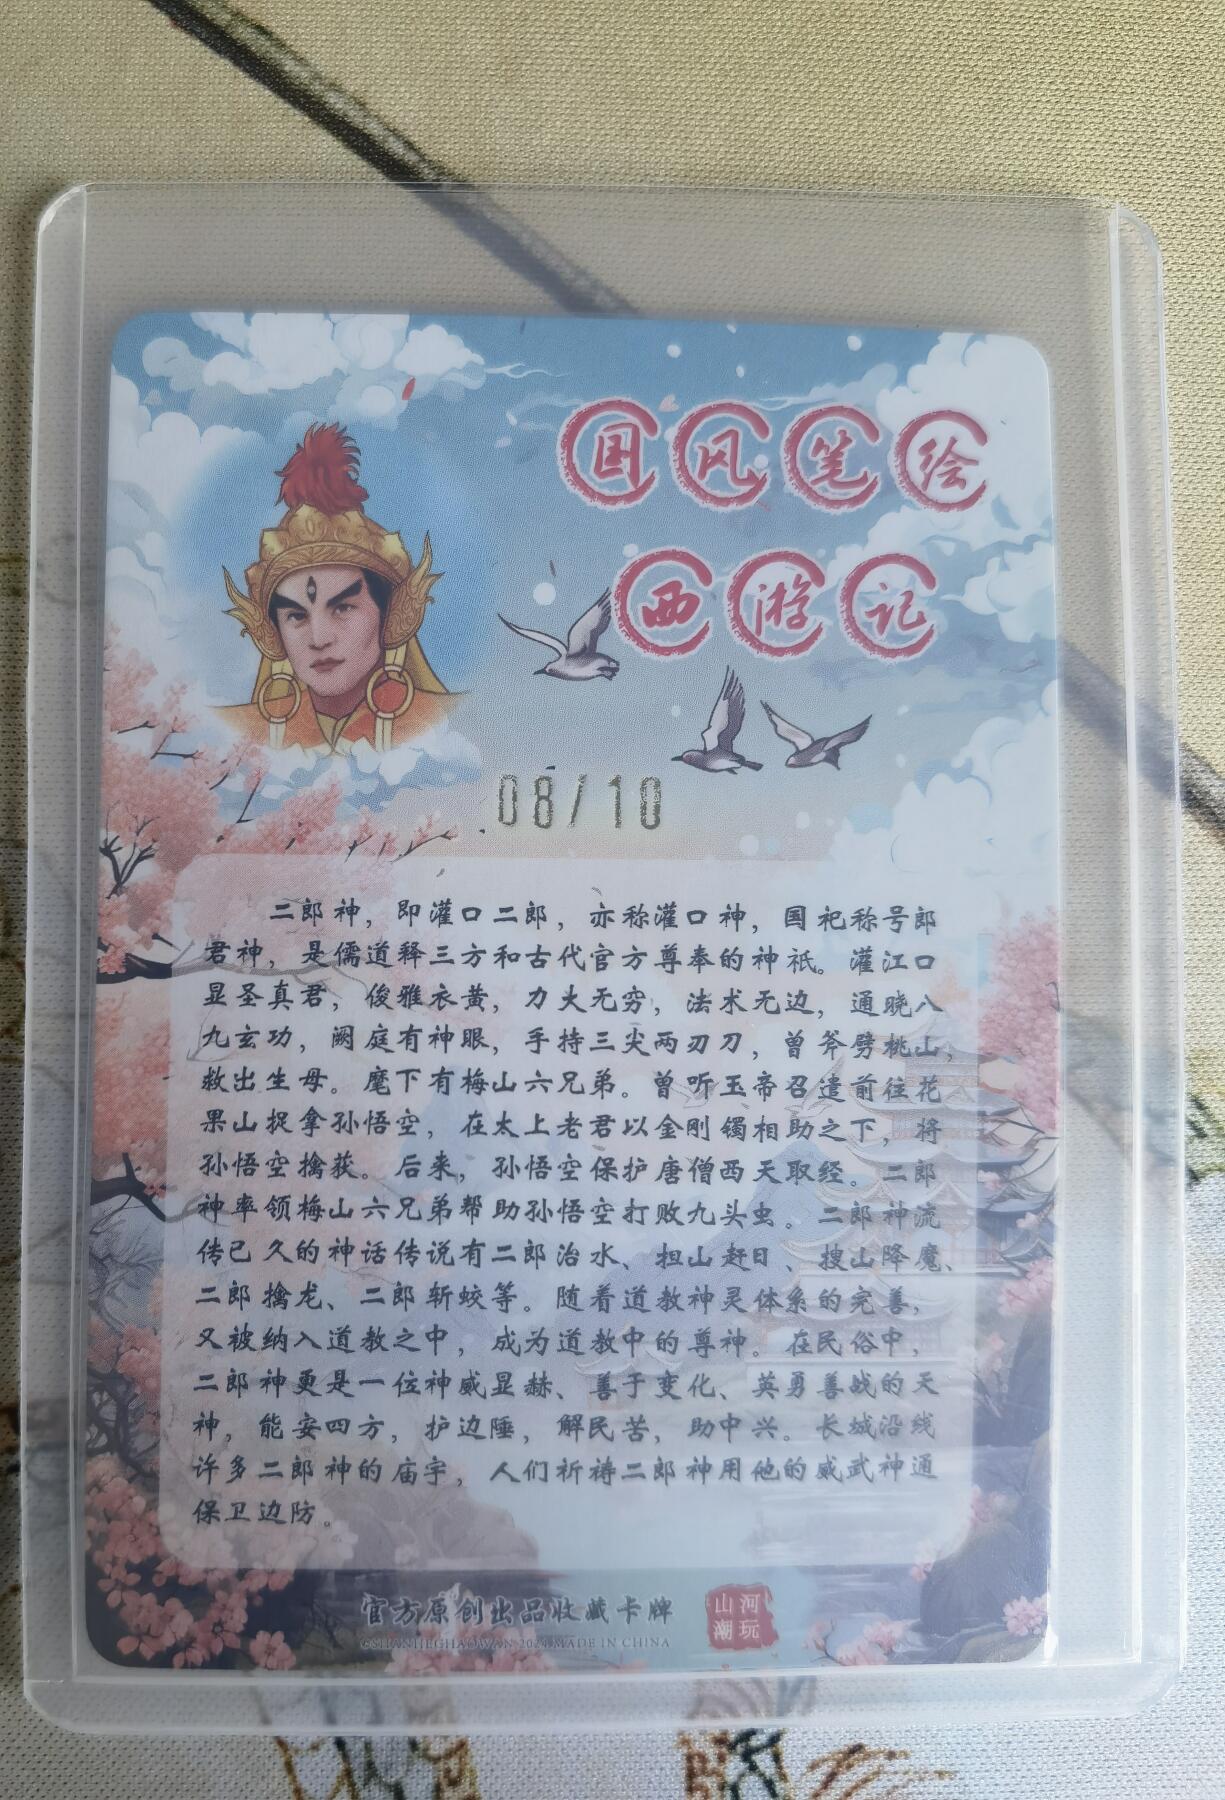 国风笔绘
西游记
08/10
二郎神，即灌口二郎，亦称灌口神，国祀称号郎
君神，是儒道释三方和古代官方尊奉的神祇。灌江口
显圣真君，俊雅衣黄，力大无穷，法术无边，通晓八
九玄功，阙庭有神眼，手持三尖两刃刀，曾斧劈桃山，
救出生母。麾下有梅山六兄弟。曾听玉帝召遣前往花
果山捉拿孙悟空，在太上老君以金刚镯相助之下，将
孙悟空擒获。后来，孙悟空保护唐僧西天取经。二郎
神率领梅山六兄弟帮助孙悟空打败九头虫。二郎神流
传已久的神话传说有二郎治水、担山赶日、搜山降魔、
二郎擒龙、二郎斩蛟等。随着道教神灵体系的完善，
又被纳入道教之中，成为道教中的尊神。在民俗中，
二郎神更是一位神威显赫、善于变化、英勇善战的天
神，能安四方，护边陲，解民苦，助中兴。长城沿线
许多二郎神的庙宇，人们祈祷二郎神用他的威武神通
保卫边防。
官方原创出品收藏卡牌
山河
潮玩
©SHANHEGHAOWAN 2024 MADE IN CHINA